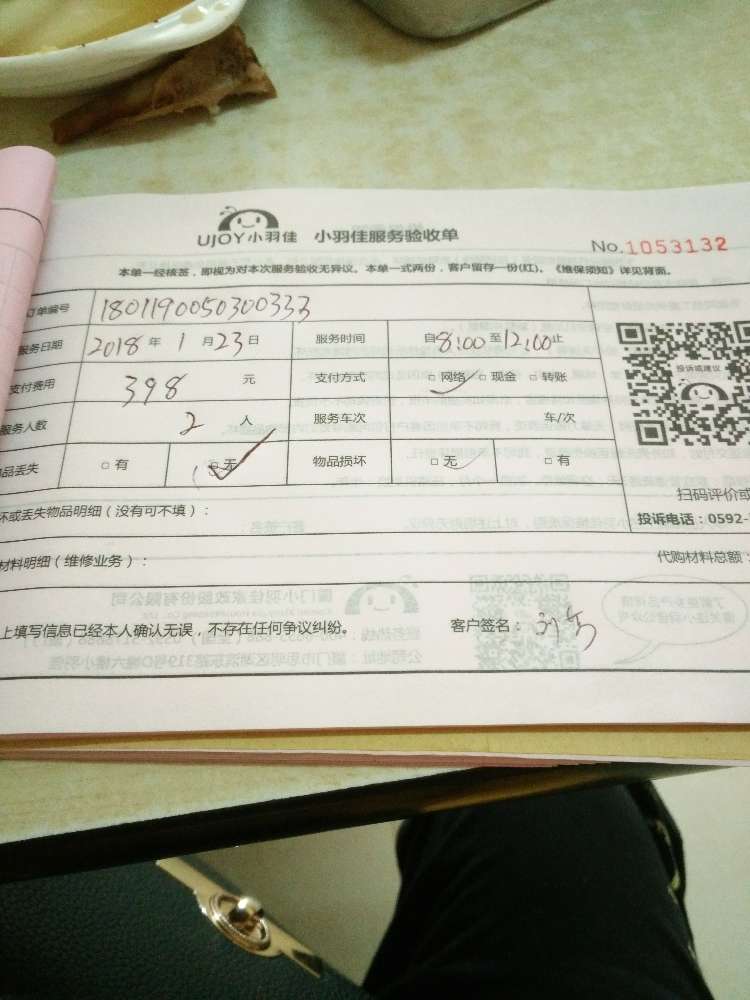 UJOY小羽佳 小羽佳服务验收单
No.1053132
本单一经核签，即视为对本次服务验收无异议。本单一式两份，客户留存一份(红)。《维保须知》详见背面。
订单编号 1801190050300333
服务日期 2018 年 1 月 23 日 服务时间 自8:00至12:00止
支付费用 398 元 支付方式 □网络 □现金 □转账
服务人数 2 人 服务车次 车/次
品丢失 □有 □无 物品损坏 □无 □有
投诉或建议
扫码评价或
投诉电话：0592-
坏或丢失物品明细（没有可不填）：
材料明细（维修业务）： 代购材料总额：
上填写信息已经本人确认无误，不存在任何争议纠纷。 客户签名：